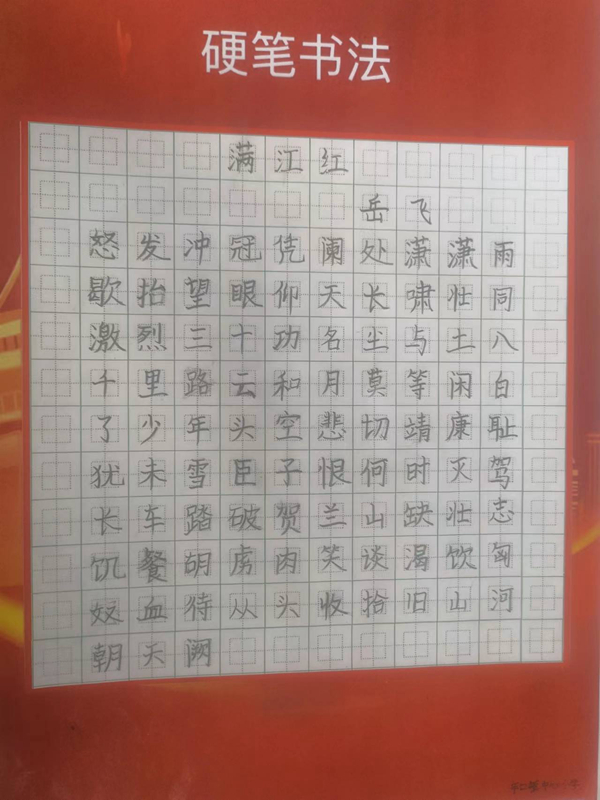 硬笔书法
满江红
岳飞
怒发冲冠凭阑处潇潇雨
歇抬望眼仰天长啸壮同
激烈三十功名尘与土八
千里路云和月莫等闲白
了少年头空悲切靖康耻
犹未雪臣子恨何时灭驾
长车踏破贺兰山缺壮志
饥餐胡虏肉笑谈渴饮匈
奴血待从头收拾旧山河
朝天阙